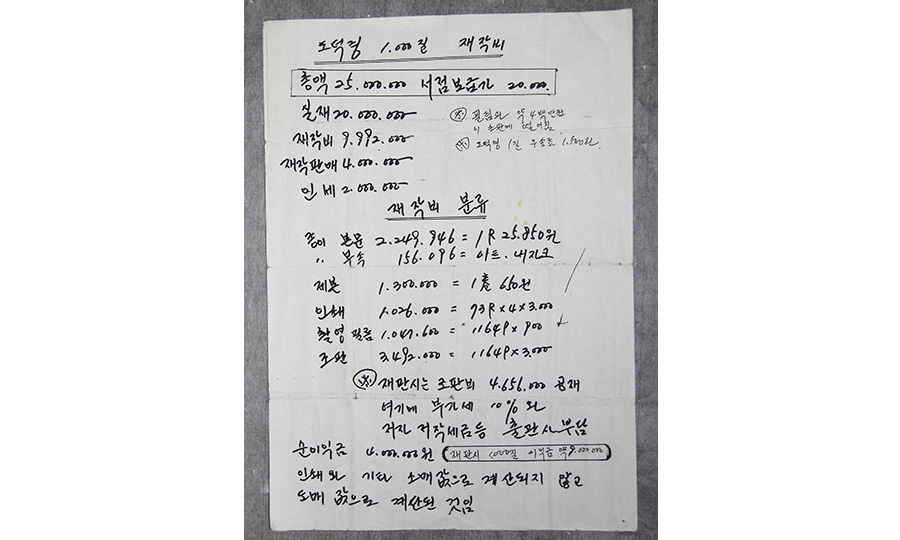 도덕경 1.000질 재작비
총액 25.000.000 서점보급가 20.000.
실재 20.000.000
※ 필림와 약 4백만원
이 조판에
※ 도덕경 1질 우송료 1.500원.
재작비 9.992.000
재작판매 4.000.000
인세 2.000.000
재작비 분류
종이 본문 2.249.946 = 1R 25.850원
〃 부속 156.096 = 아트. 내지크
제본 1.300.000 = 1권 650원
인쇄 1.026.000 = 93R×4×3.000
촬영필름 1.047.600 = 1164P×900
조판 3.492.000 = 1164P×3.000
※ 재판시는 조판비 4.656.000 공재
여기에 부가세 10%와
저자 저작세금등 출판사 부담
순이익금 4.000.000원 재판시 1000질 이익금 약 9.000.000
인쇄와 기타 소매값으로 계산되지 않고
도매 값으로 계산된 것임